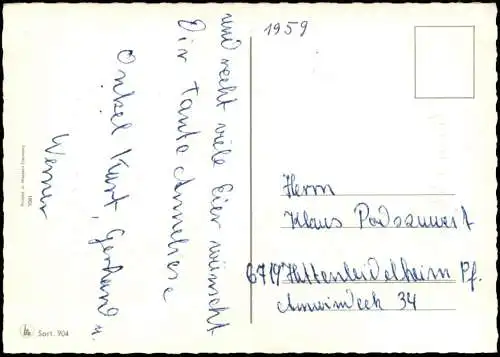 1959
und recht viele Eier wünscht
Dir Tante Anneliese
Onkel Kurt, Gerhard u.
Werner
Herrn
Klaus Podszuweit
6719 Hettenleidelheim Pf.
34
Printed in Western Germany
Sort. 904